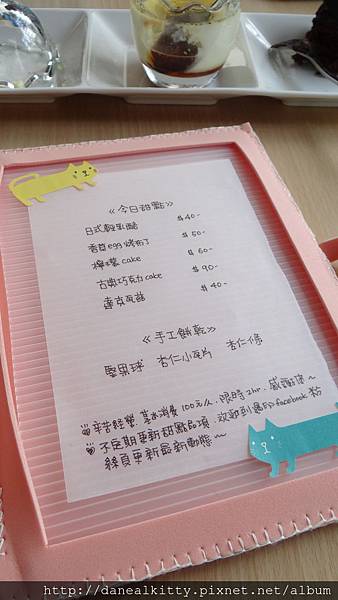 《今日甜點》
日式輕乳酪 $40-
香草egg烤布丁 $50-
檸檬cake $60-
古典巧克力cake $90-
達克瓦茲 $40-
《手工餅乾》
堅果球 杏仁小瓦片 杏仁條
辛苦經營,基本消費100元/人,限時2hr,感謝您~
不定期更新甜點品項,歡迎到 facebook 粉
絲頁更新最新動態~
http://danealkitty.pixnet.net/album